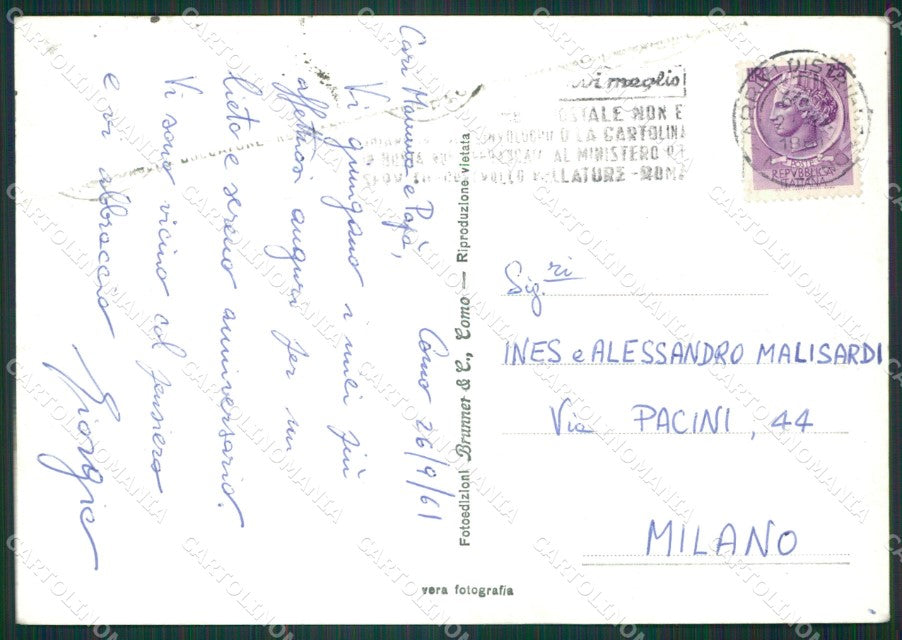 Cari Mamma e Papà,
Como 26/9/61
Vi giungano i miei più
affettuosi auguri per un
lieto e sereno anniversario.
Vi sono vicino col pensiero
e vi abbraccio
Giorgio
Fotoedizioni Brunner & C., Como — Riproduzione vietata
vera fotografia
meglio
POSTALE NON E
O LA CARTOLINA
AL MINISTERO
ROMA
POSTE
REPVBBLICA
ITALIANA
Sig.ri
INES e ALESSANDRO MALISARDI
Via PACINI, 44
MILANO
CARTOLINOMANIA